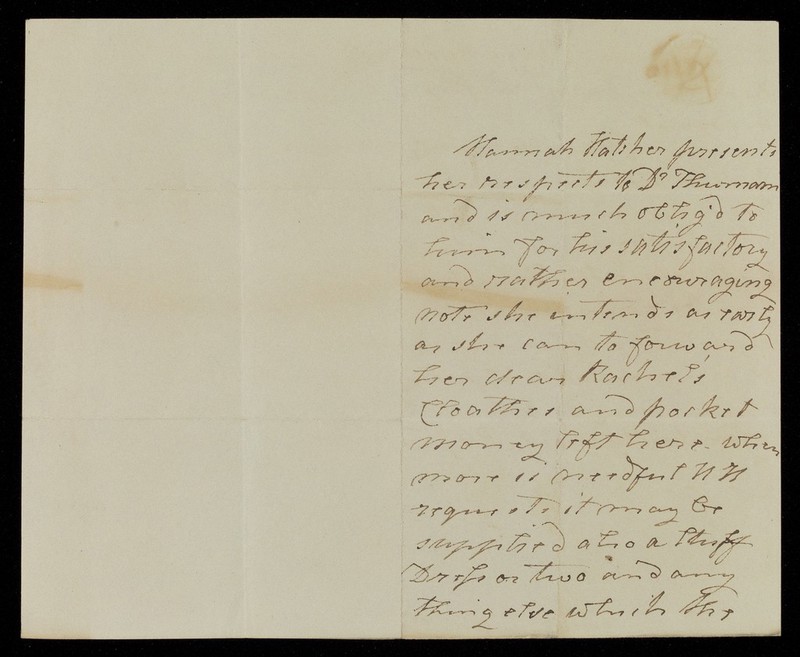 Hannah Hatcher presents
her respects to Dr Thurnam
and is much oblig'd to
him for his satisfactory
and rather encouraging
note she intends as early
as she can to forward
her dear Rachel's
Cloathes and pocket
money left here. when
more is needful HH
requests it may be
supplied also a Stuff
Dress or two and any
thing else which the